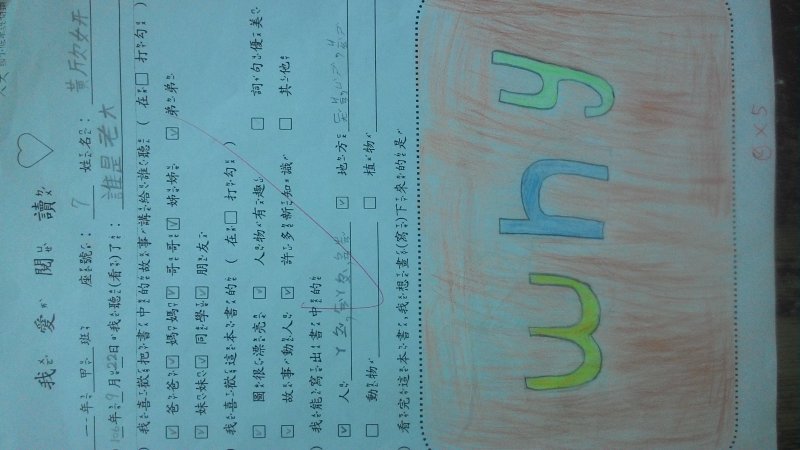 我愛閱讀
一年甲班 座號：7 姓名：黃欣妍
106年9月22日我聽(看)了：誰是老大
)我喜歡把書中的故事講給誰聽(在□打勾)
☑爸爸☑媽媽☑哥哥☑姊姊☑弟弟
☑妹妹☑同學☑朋友
)我喜歡這本書的(在□打勾)
☑圖很漂亮 □人物有趣 □詞句優美
☑故事動人☑許多新知識 □其他
)我能寫出書中的
☑人 ☑地方
□動物 □植物
)看完這本書,我想畫(寫)下來的是
why
@×5